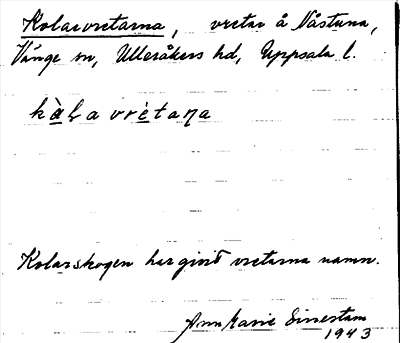 Kolarvretarna, vretar å Nåstuna,
Vänge sn, Ulleråkers hd, Uppsala l.
kàḷavrètaṇa
Kolarskogen har givit vretarna namn.
Ann Marie
1943